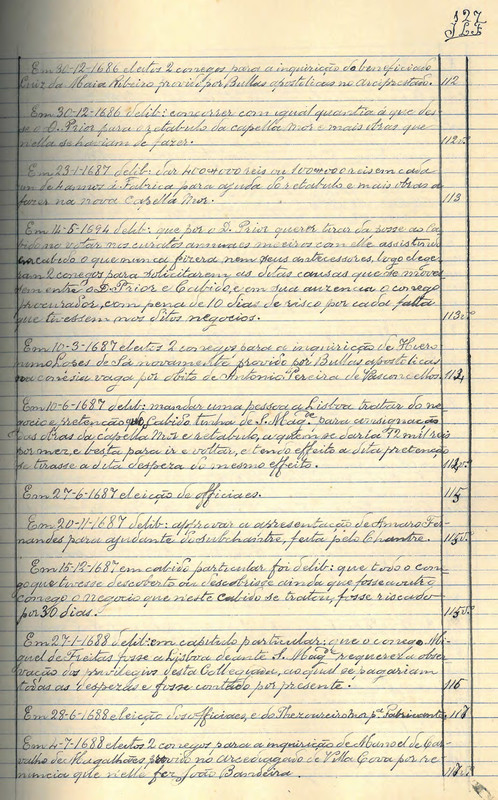 127
Em 30-12-1686 eleitos 2 conegos para a inquirição do beneficiado
Luiz da Maia Ribeiro provido por Bullas apostolicas no arciprestado. 112
Em 30-12-1686 delib: concorrer com igual quantia á que des-
se o D. Prior para o retabulo da capella mor e mais obras que
nella se haviam de fazer. 112vº
Em 23-1-1687 delib: dar 400#000 reis ou 100#000 reis em cada
um de 4 annos á Fabrica, para ajuda do retabulo e mais obras a
fazer na nova Capella Mor. 113
Em 14-5-1694 delib: que por o D. Prior querer tirar da posse ao Ca-
bido no votar nos curatos annuaes moeiros com elle assistindo
em cabido o que nunca fizera nem seus antecessores, logo elege-
ram 2 conegos para solicitarem as ditas causas que se moves-
sem entre o D. Prior e Cabido, e em sua auzencia o conego
procurador, com pena de 10 dias de risco por cada falta
que tivessem nos ditos negocios. 113vº
Em 10-3-1687 eleitos 2 conegos para a inquirição de Hiero-
nimo Lopes de Sá novamente provido por Bullas apostolicas
na conesia vaga por obito de Antonio Pereira de Vasconcellos. 114
Em 10-6-1687 delib: mandar uma pessoa a Lisboa tratar do ne-
gocio e pretenção que o Cabido tinha de S. Magde para a consignação
das obras da capella Mor e retabulo, a quem se daria 12 mil reis
por mez, e besta para ir e voltar, e tendo effeito a dita pretenção
se tirasse a dita despeza do mesmo effeito. 112vº
Em 27-6-1687 eleição de officiaes. 115
Em 20-11-1687 delib: approvar a apresentação de Amaro Fer-
nandes para ajudante do subchantre, feita pelo Chantre. 115vº
Em 15-12-1687 em cabido particular foi delib: que todo o co-
nego que tivesse descoberto ou descobrisse ainda que fosse a outro
conego o negocio que neste cabido se tratou, fosse riscado
por 30 dias. 115vº
Em 27-1-1688 delib: em capitulo particular: que o conego Mi-
guel de Freitas fosse a Lisboa deante S. Magde requerer a obser-
vação dos privilegios desta Collegiada, ao qual se pagariam
todas as despezas e fosse contado por presente. 116
Em 28-6-1688 eleição dos officiaes, e do Thezoureiro mor pª Fabricante. 117
Em 4-7-1688 eleitos 2 conegos para a inquirição de Manoel de Car-
valho de Magalhães, provido no arcediagado de Villa Cova por re-
nuncia que nelle fez João Bandeira. 117vº